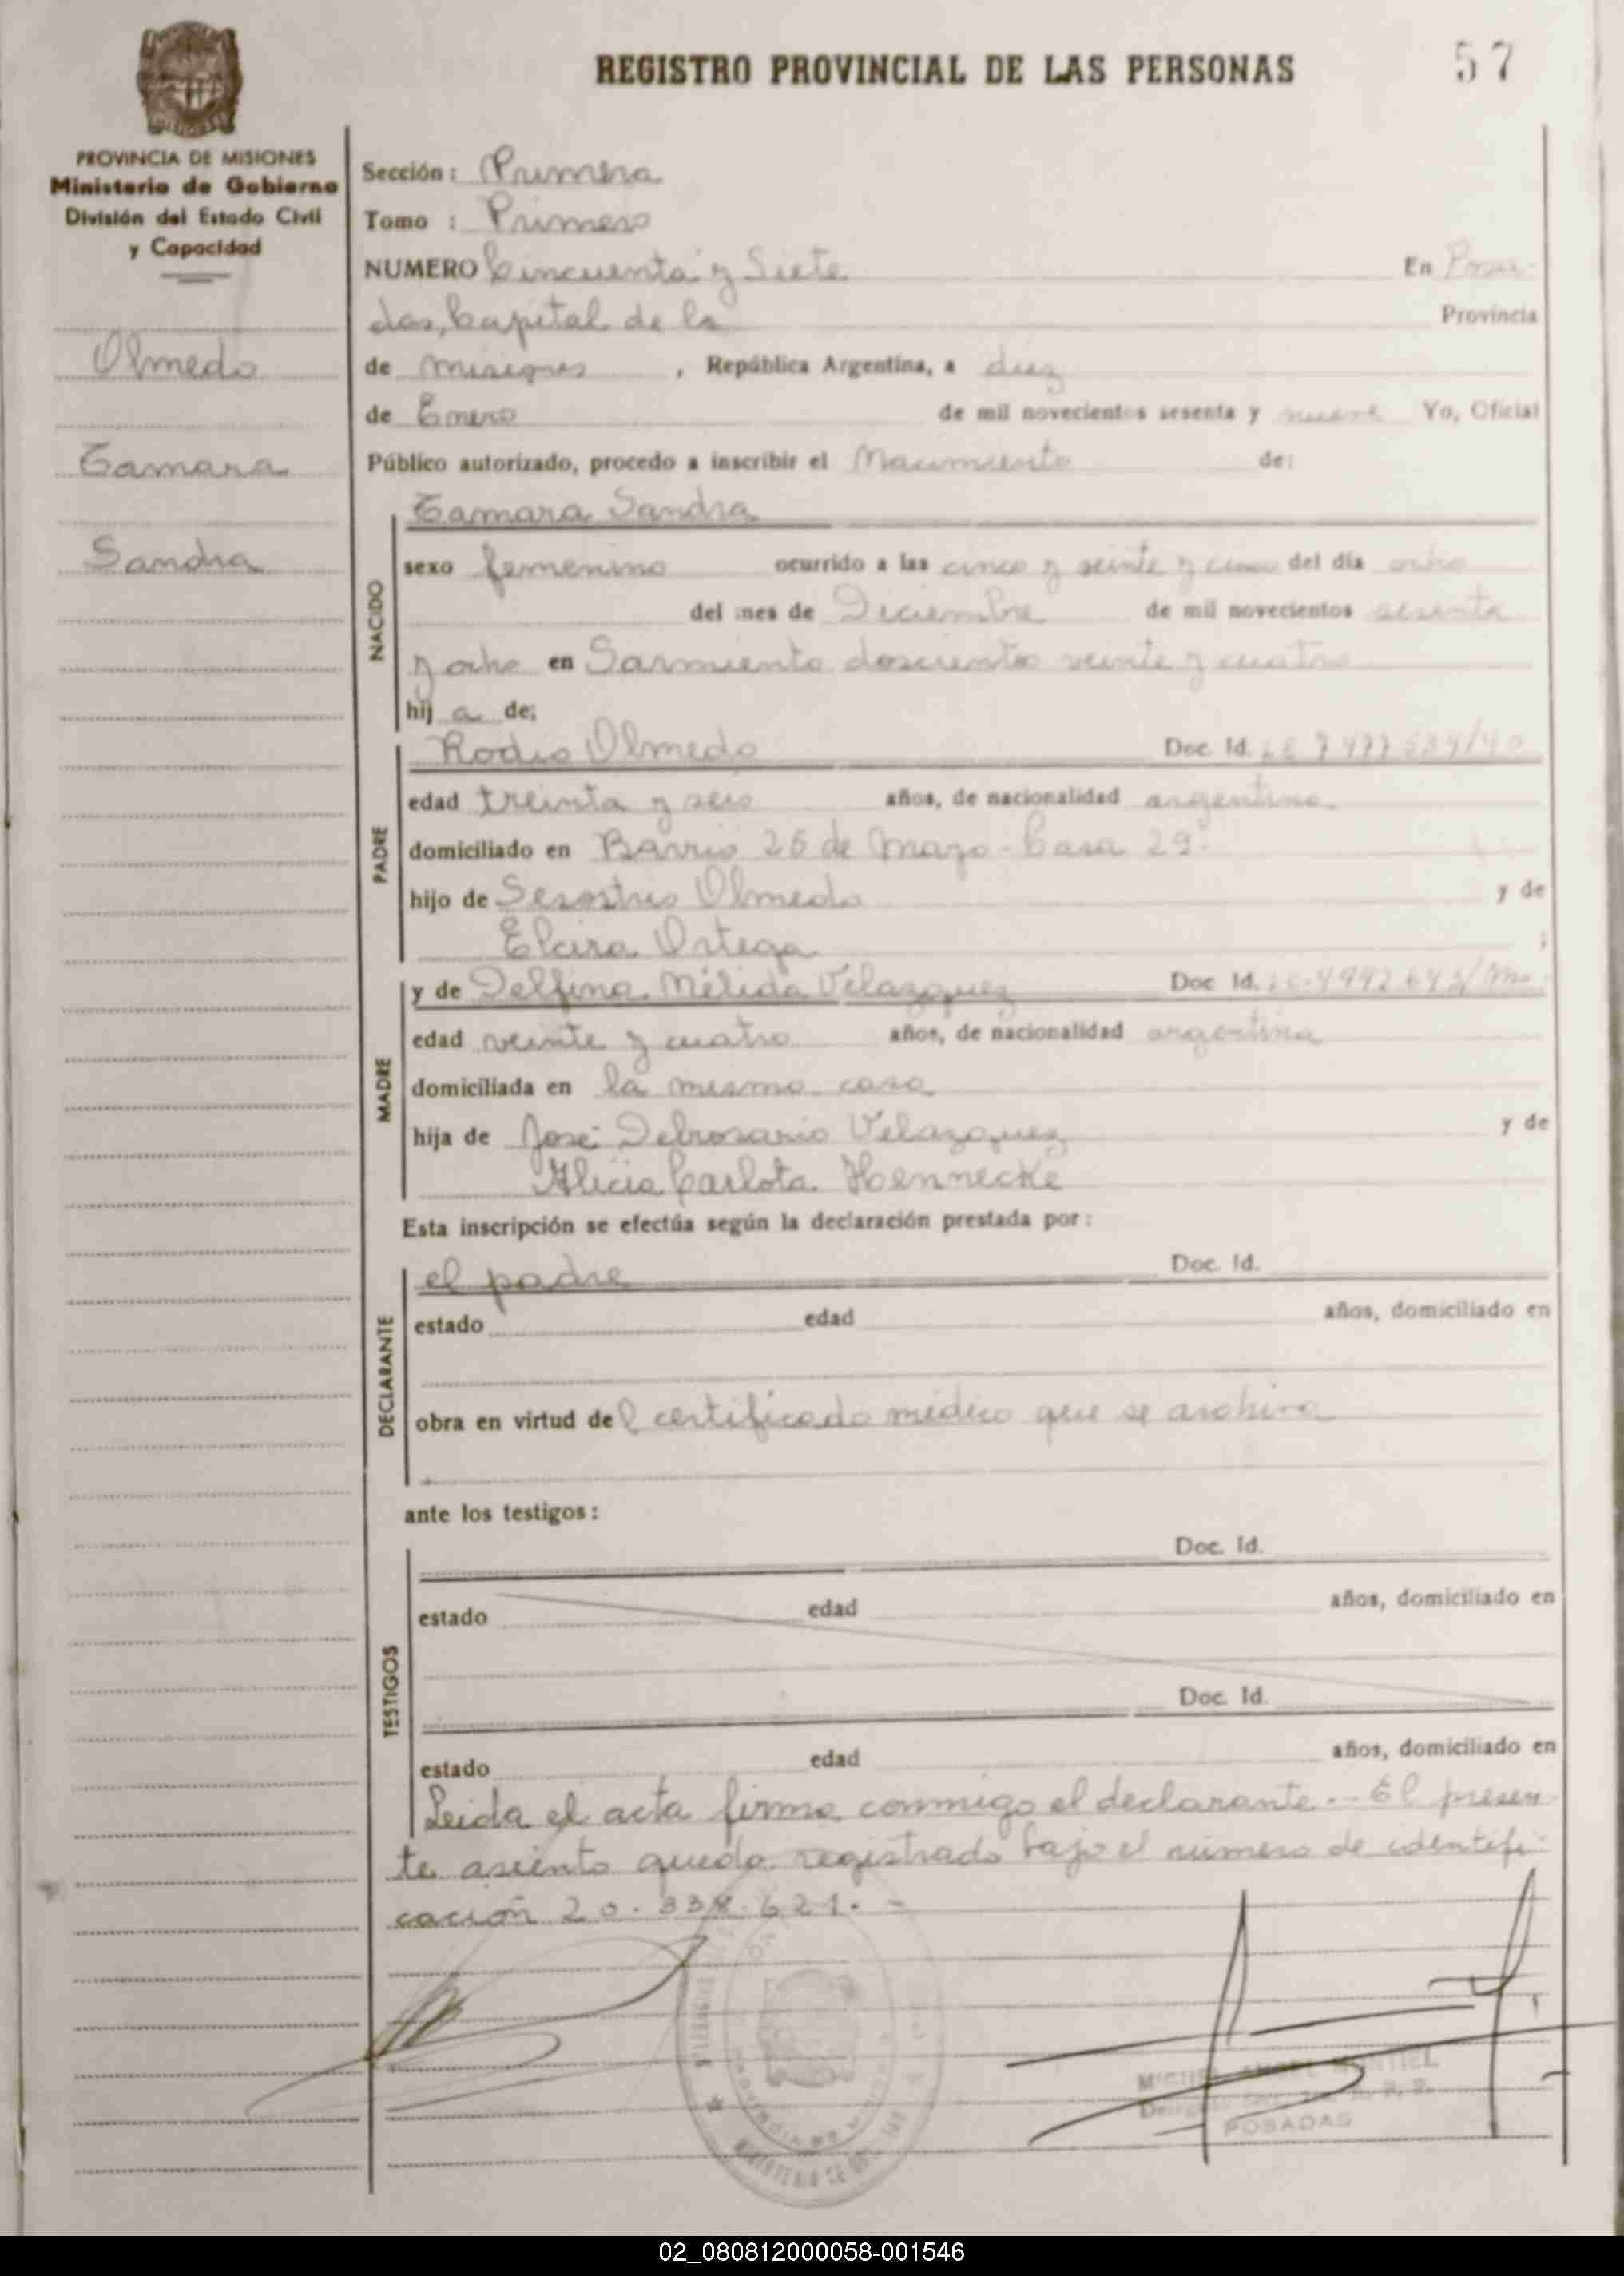 REGISTRO PROVINCIAL DE LAS PERSONAS
57
PROVINCIA DE MISIONES
Ministerio de Gobierno
División del Estado Civil
y Capacidad
Olmedo
Tamara
Sandra
Sección: Primera
Tomo : Primero
NUMERO Cincuenta y Siete En Posa-
das, Capital de la Provincia
de Misiones, República Argentina, a diez
de Enero de mil novecientos sesenta y nueve Yo, Oficial
Público autorizado, procedo a inscribir el Nacimiento de:
NACIDO
Tamara Sandra
sexo femenino ocurrido a las cinco y veinte y cinco del día ocho
del mes de Diciembre de mil novecientos sesenta
y ocho en Sarmiento doscientos veinte y cuatro
hij a de;
PADRE
Olmedo Doc. Id.
edad treinta y seis años, de nacionalidad argentino
domiciliado en Barrio 25 de Mayo - Casa 29-
hijo de Sesostris Olmedo y de
Elcira Ortega ;
MADRE
y de Delfina Nélida Velazquez Doc Id.
edad veinte y cuatro años, de nacionalidad argentina
domiciliada en la misma casa
hija de José Delrosario Velazquez y de
Alicia Carlota Hennecke
Esta inscripción se efectúa según la declaración prestada por:
DECLARANTE
el padre Doc. Id.
estado edad años, domiciliado en
obra en virtud del certificado médico que se archiva
ante los testigos:
TESTIGOS
Doc. Id.
estado edad años, domiciliado en
Doc. Id.
estado edad años, domiciliado en
Leida el acta firma conmigo el declarante.- El presen-
te asiento queda registrado bajo el número de identifi-
cación 20.338.621.-
MIGUEL ANGEL MONTIEL
POSADAS
02_080812000058-001546